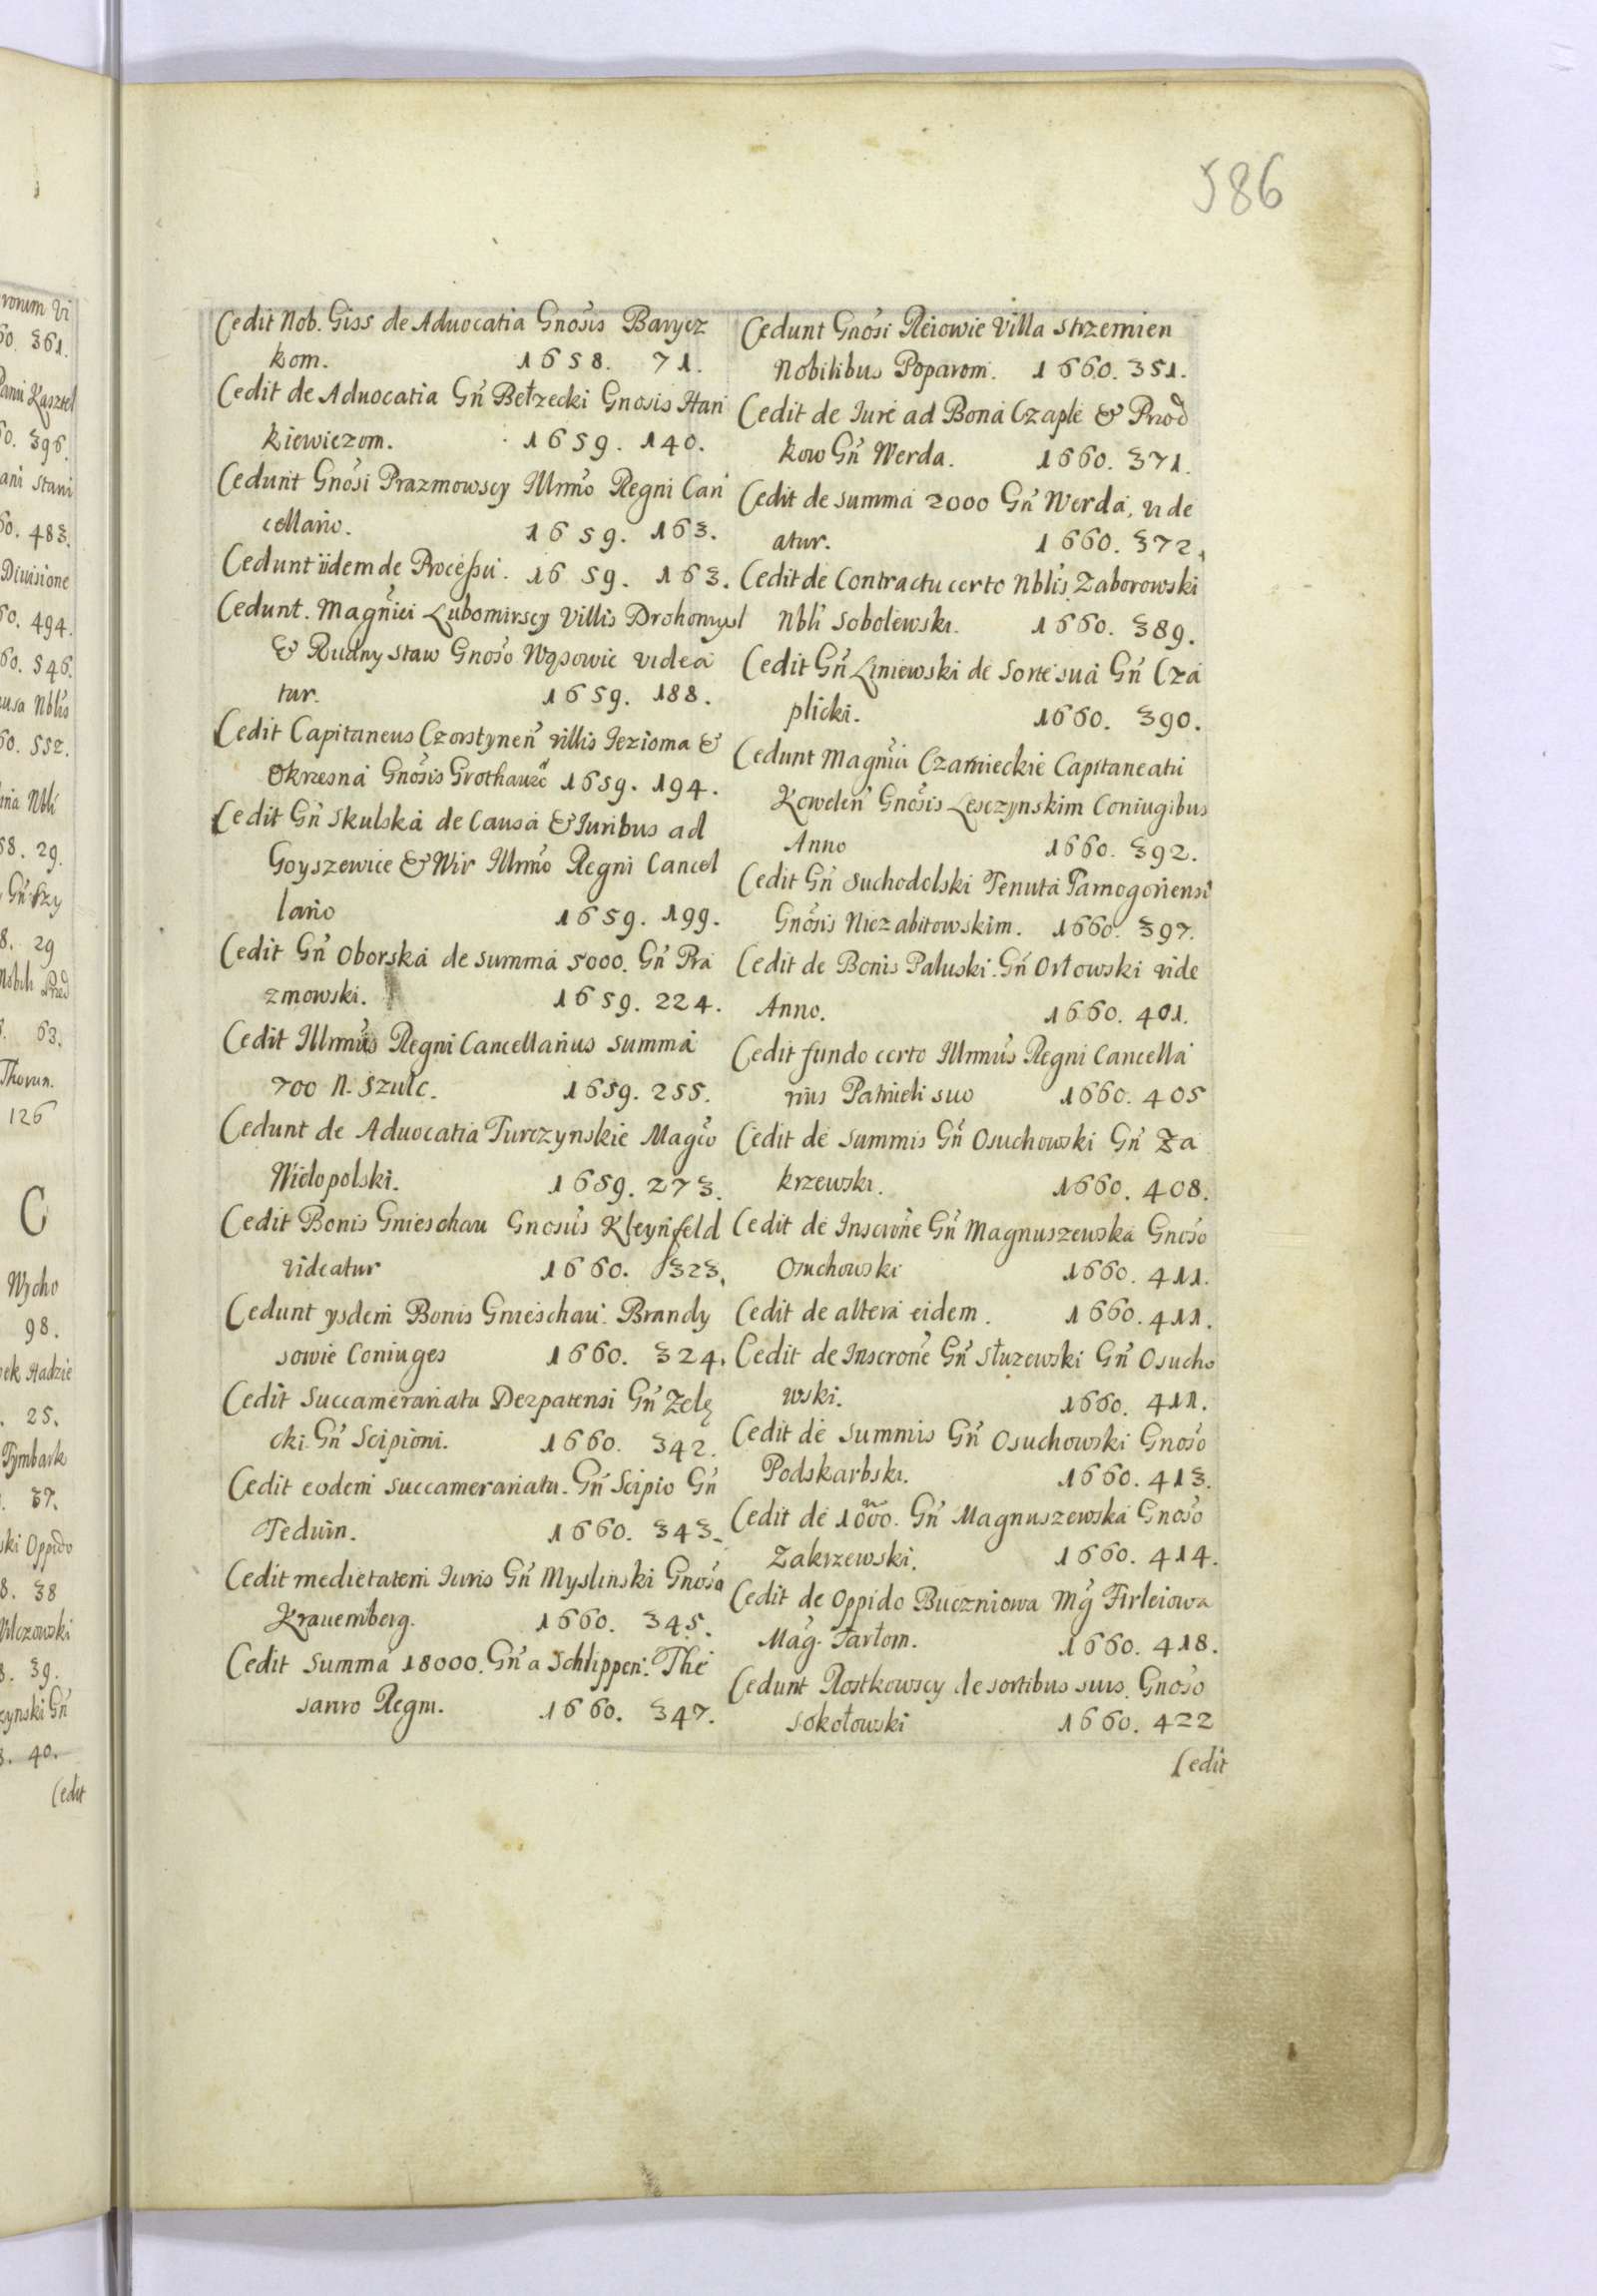 586
Cedit Nob. Giss de Aduocatia Gnosis Barycz
kom. 1658. 71.
Cedit de Aduocatia Gn̄ Bełzecki Gnosis Han
kiewiczom. 1659. 140.
Cedunt Gnosi Prazmowscy Illmo Regni Can
cellario. 1659. 163.
Cedunt iidem de Processu. 1659. 163.
Cedunt. Magnici Lubomirscy Villis Drohomysl
& Rudny staw Gnoso Wąsowic videa
tur. 1659. 188.
Cedit Capitaneus Czorstynen̄ villis Iezioma &
Okrzesna Gnosis Grothauzō 1659. 194.
Cedit Gn̄ Skulska de Causa & Iuribus ad
Goyszewice & Wir Illmo Regni Cancel
lario 1659. 199.
Cedit Gn̄ Oborska de summa 5000. Gn̄ Pra
zmowski. 1659. 224.
Cedit Illmus Regni Cancellarius summa
700 N. Szulc. 1659. 255.
Cedunt de Aduocatia Turczynskie Magco
Wielopolski. 1659. 273.
Cedit Bonis Gnieschau Gnosus Kleynfeld
videatur 1660. 323.
Cedunt ysdem Bonis Gnieschau. Brandy
sowie Coniuges 1660. 324.
Cedit Succamerariatu Derpatensi Gn̄ Zelę
cki Gn̄ Scipioni. 1660. 342.
Cedit eodem succamerariatu. Gn̄ Scipio Gn̄
Teduin. 1660. 343.
Cedit medietatem Iuris Gn̄ Myslinski Gnosa
Krauemberg. 1660. 345.
Cedit Summa 18000. Gn̄ a Schlippen. The
sauro Regni. 1660. 347.
Cedunt Gnosi Reiowie Villa Strzemien
Nobilibus Poparom. 1660. 351.
Cedit de Iure ad Bona Czaple & Przod
kow Gn̄ Werda. 1660. 371.
Cedit de summa 2000 Gn̄ Werda, vide
atur. 1660. 372.
Cedit de Contractu certo Nblis Zaborowski
Nbli Sobolewski. 1660. 389.
Cedit Gn̄ Liniewski de Sorte sua Gn̄ Cza
plicki. 1660. 390.
Cedunt Magnici Czarnieckie Capitaneatu
Kowelen̄ Gnosis Lesczynskim Coniugibus
Anno 1660. 392.
Cedit Gn̄ Suchodolski Tenuta Tarnogoriensi
Gnosis Niezabitowskim. 1660. 397.
Cedit de Bonis Paluski. Gn̄ Orłowski vide
Anno. 1660. 401.
Cedit fundo certo Illmus Regni Cancella
rius Patrueli suo 1660. 405
Cedit de Summis Gn̄ Osuchowski Gn̄ Za
krzewski. 1660. 408.
Cedit de Inscrone Gn̄ Magnuszewska Gnoso
Osuchowski 1660. 411.
Cedit de altera eidem. 1660. 411.
Cedit de Inscrone Gn̄ Służewski Gn̄ Osucho
wski. 1660. 411.
Cedit de Summis Gn̄ Osuchowski Gnoso
Podskarbski. 1660. 413.
Cedit de 1000. Gn̄ Magnuszewska Gnoso
Zakrzewski. 1660. 414.
Cedit de Oppido Buczniowa Mg̃ Firleiowa
Mag. Tarłom. 1660. 418.
Cedunt Rostkowscy de sortibus suis. Gnoso
Sokołowski 1660. 422
Cedit